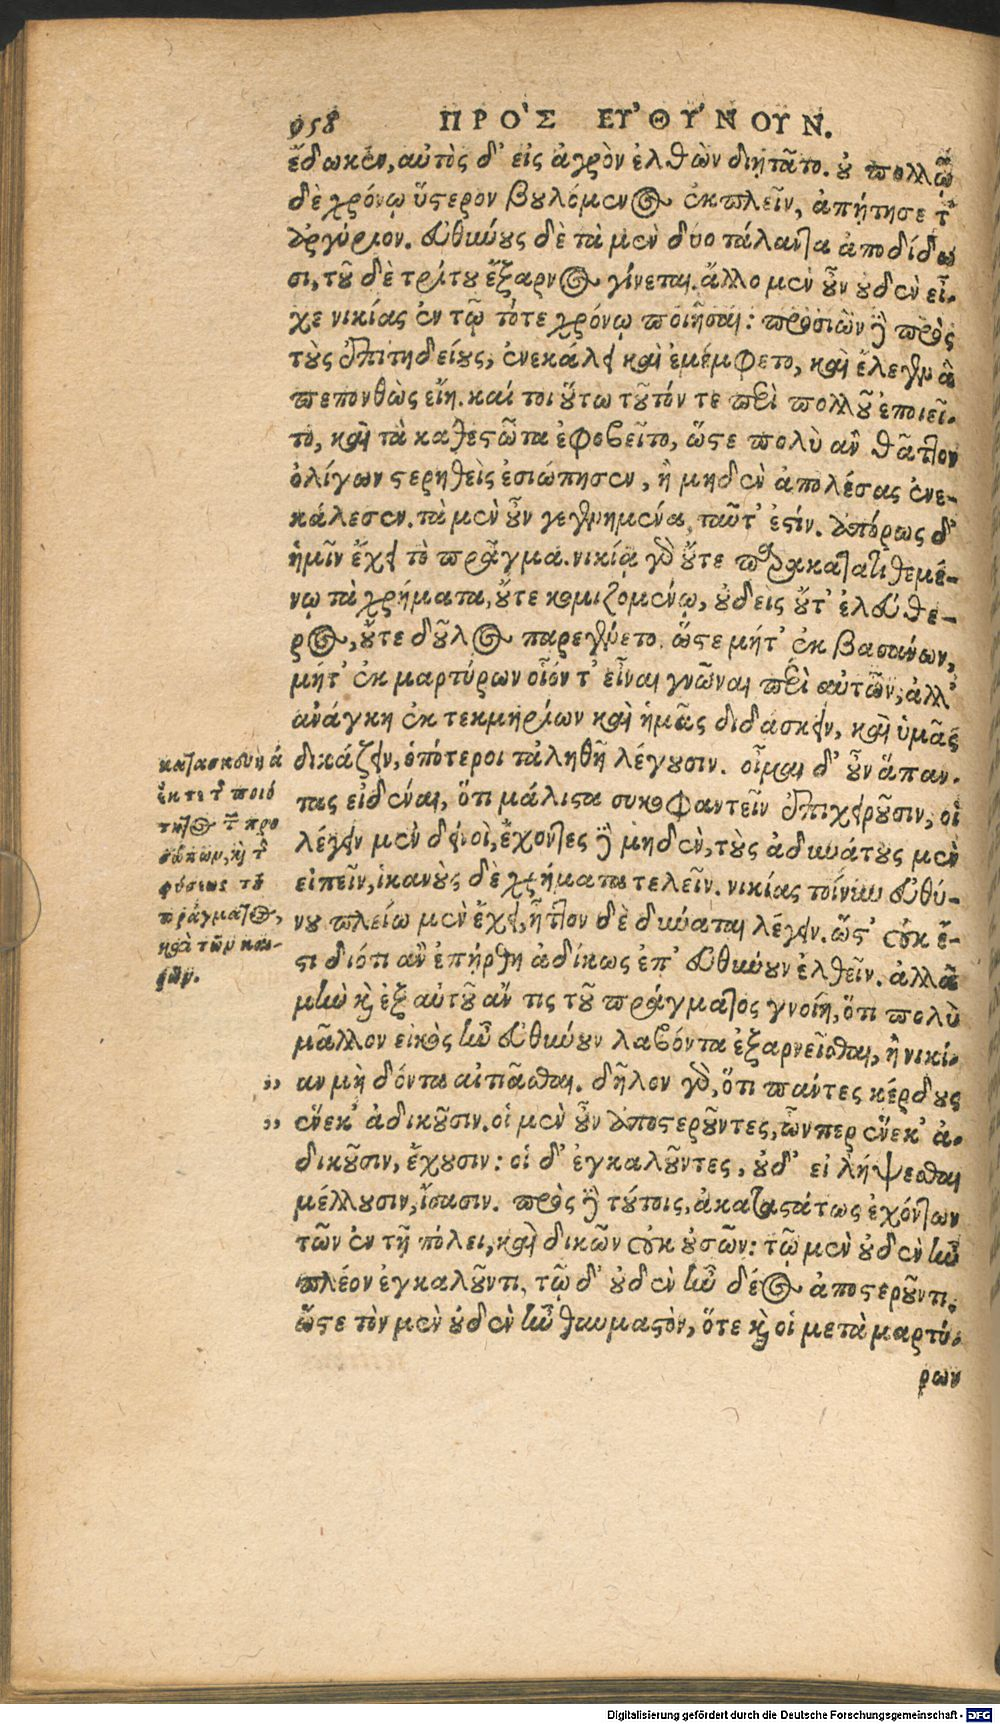 958 ΠΡΟῪΣ ΕΥ᾽ΘΥ´ΝΟΥΝ.
ἔδωκεν, αὐτὸς δ᾽ εἰς ἀγρὸν ἐλθὼν διῃτᾶτο. οὐ πολλῷ
δὲ χρόνῳ ὕστερον βουλόμενος ἐκπλεῖν, ἀπῄτησε τ̀
ἀργύριον. Εὐθύνους δὲ τὰ μὲν δύο τάλαντα ἀποδίδω
σι, τοῦ δὲ τρίτου ἔξαρνος γίνεται. ἄλλο μὲν οὖν οὐδὲν εἶ-
χε νικίας ἐν τῷ τότε χρόνῳ ποιῆσαι: προσιὼν δὲ πρὸς
τοὺς ἐπιτηδείους, ἐνεκάλει καὶ ἐμέμφετο, καὶ ἔλεγεν ἃ
πεπονθὼς εἴη. καί τοι οὕτω τοῦτόν τε περὶ πολλοῦ ἐποιεῖ-
το, καὶ τὰ καθεστῶτα ἐφοβεῖτο, ὥστε πολὺ ἂν θᾶττον
ὀλίγων στερηθεὶς ἐσιώπησεν, ἢ μηδὲν ἀπολέσας ἐνε-
κάλεσεν. τὰ μὲν οὖν γεγενημένα, ταῦτ᾽ ἐστίν. ἀπόρως δ᾽
ἡμῖν ἔχει τὸ πρᾶγμα. νικίᾳ γὰρ οὔτε παρακατατιθεμέ-
νῳ τὰ χρήματα, οὔτε κομιζομένῳ, οὐδεὶς οὔτ᾽ ἐλεύθε-
ρος, οὔτε δοῦλος παρεγένετο. ὥστε μήτ᾽ ἐκ βασάνων,
μήτ᾽ ἐκ μαρτύρων οἷόν τ᾽ εἶναι γνῶναι περὶ αὐτῶν, ἀλλ᾽
ἀνάγκη ἐκ τεκμηρίων καὶ ἡμᾶς διδάσκειν, καὶ ὑμᾶς
δικάζειν, ὁπότεροι τἀληθῆ λέγουσιν. οἶμαι δ᾽ οὖν ἅπαν-
τας εἰδέναι, ὅτι μάλιστα συκοφαντεῖν ἐπιχειροῦσιν, οἱ
λέγειν μὲν δεινοὶ, ἔχοντες δὲ μηδὲν, τοὺς ἀδυνάτους μὲν
εἰπεῖν, ἱκανοὺς δὲ χρήματα τελεῖν. νικίας τοίνυν Εὐθύ-
νου πλείω μὲν ἔχει, ἧττον δὲ δύναται λέγειν. ὥστ᾽ οὐκ ἔ-
στι διότι ἂν ἐπήρθη ἀδίκως ἐπ᾽ Εὐθύνουν ἐλθεῖν. ἀλλὰ
μὴν καὶ ἐξ αὐτοῦ ἄν τις τοῦ πράγματος γνοίη, ὅτι πολὺ
μᾶλλον εἰκὸς ἦν Εὐθύνουν λαβόντα ἐξαρνεῖσθαι, ἢ νικί-
,, αν μὴ δόντα αἰτιᾶσθαι. δῆλον γὰρ, ὅτι πάντες κέρδους
,, ἕνεκ᾽ ἀδικοῦσιν. οἱ μὲν οὖν ἀποστεροῦντες, ὧνπερ ἕνεκ᾽ ἀ-
δικοῦσιν, ἔχουσιν: οἱ δ᾽ ἐγκαλοῦντες, οὐδ᾽ εἰ λήψεσθαι
μέλλουσιν, ἴσασιν. πρὸς δὲ τούτοις, ἀκαταστάτως ἐχόντων
τῶν ἐν τῇ πόλει, καὶ δικῶν οὐκ οὐσῶν: τῷ μὲν οὐδὲν ἦν
πλέον ἐγκαλοῦντι, τῷ δ᾽ οὐδὲν ἦν δέος ἀποστεροῦντι.
ὥστε τὸν μὲν οὐδὲν ἦν θαυμαστὸν, ὅτε καὶ οἱ μετὰ μαρτύ-
ρων
κατασκευὴ ἀ
ἔκ τε τ̃ ποιό
τητος τ̃ προ
σώπων, καὶ τ̃
φύσεως τοῦ
πράγματος,
κατὰ τῶν και-
ρῶν.
Digitalisierung gefördert durch die Deutsche Forschungsgemeinschaft - DFG